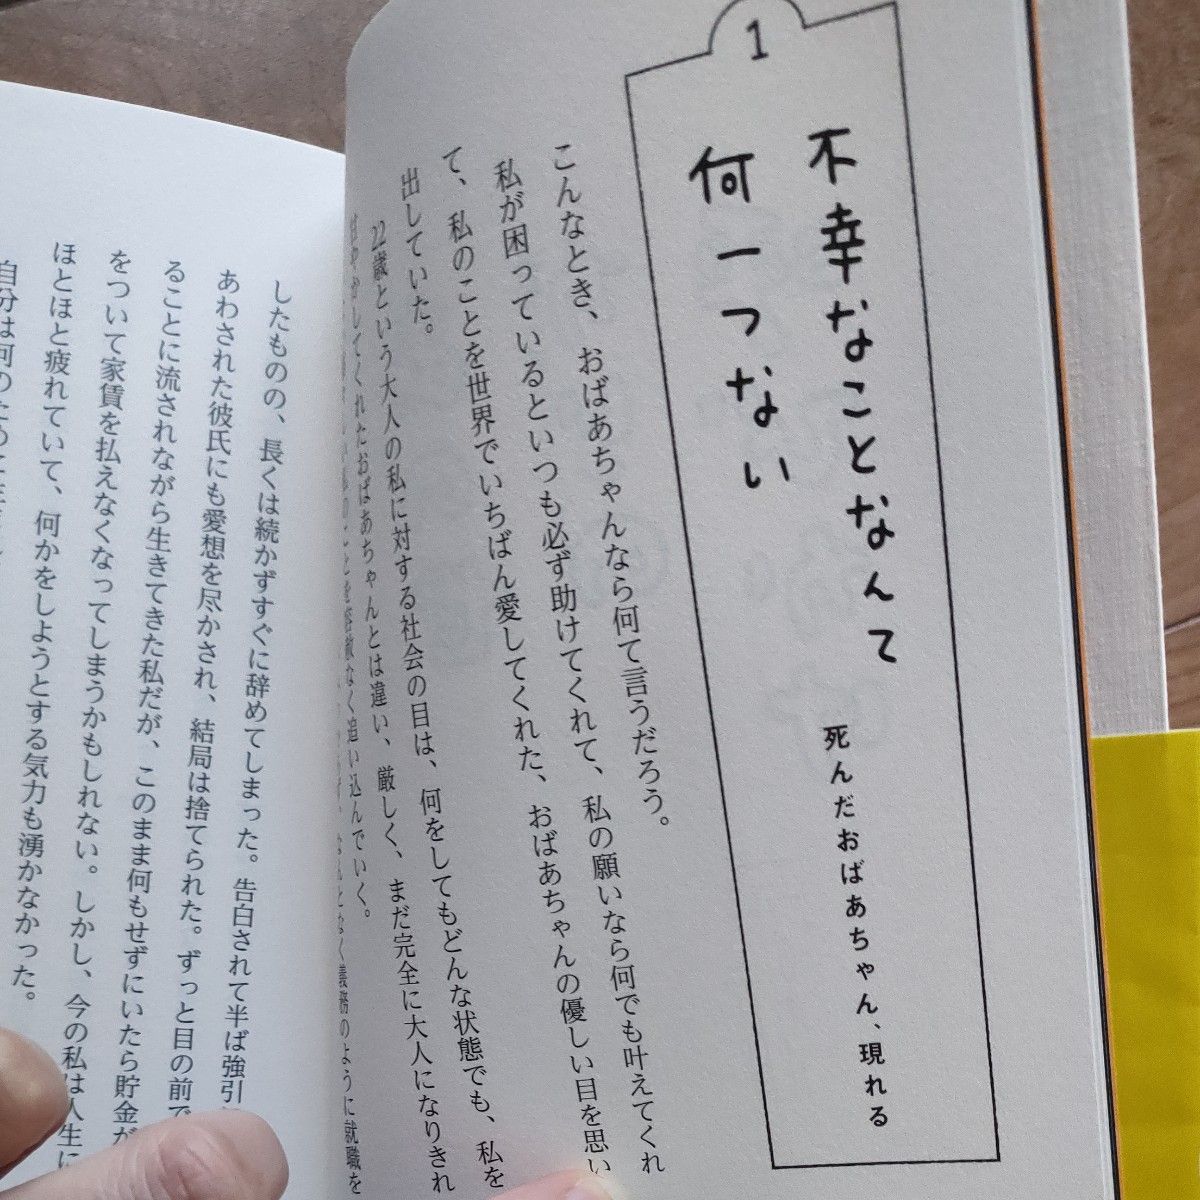 1
不幸なことなんて
何一つない
死んだおばあちゃん、現れる
こんなとき、おばあちゃんなら何て言うだろう。
私が困っているといつも必ず助けてくれて、私の願いなら何でも叶えてくれ
て、私のことを世界でいちばん愛してくれた、おばあちゃんの優しい目を思い
出していた。
22歳という大人の私に対する社会の目は、何をしてもどんな状態でも、私を
甘やかしてくれたおばあちゃんとは違い、厳しく、まだ完全に大人になりきれ
容赦なく追い込んでいく。
なんとなく義務のように就職を
したものの、長くは続かずすぐに辞めてしまった。告白されて半ば強引
あわされた彼氏にも愛想を尽かされ、結局は捨てられた。ずっと目の前で
ることに流されながら生きてきた私だが、このまま何もせずにいたら貯金が
をついて家賃を払えなくなってしまうかもしれない。しかし、今の私は人生に
ほとほと疲れていて、何かをしようとする気力も湧かなかった。
自分は何のために